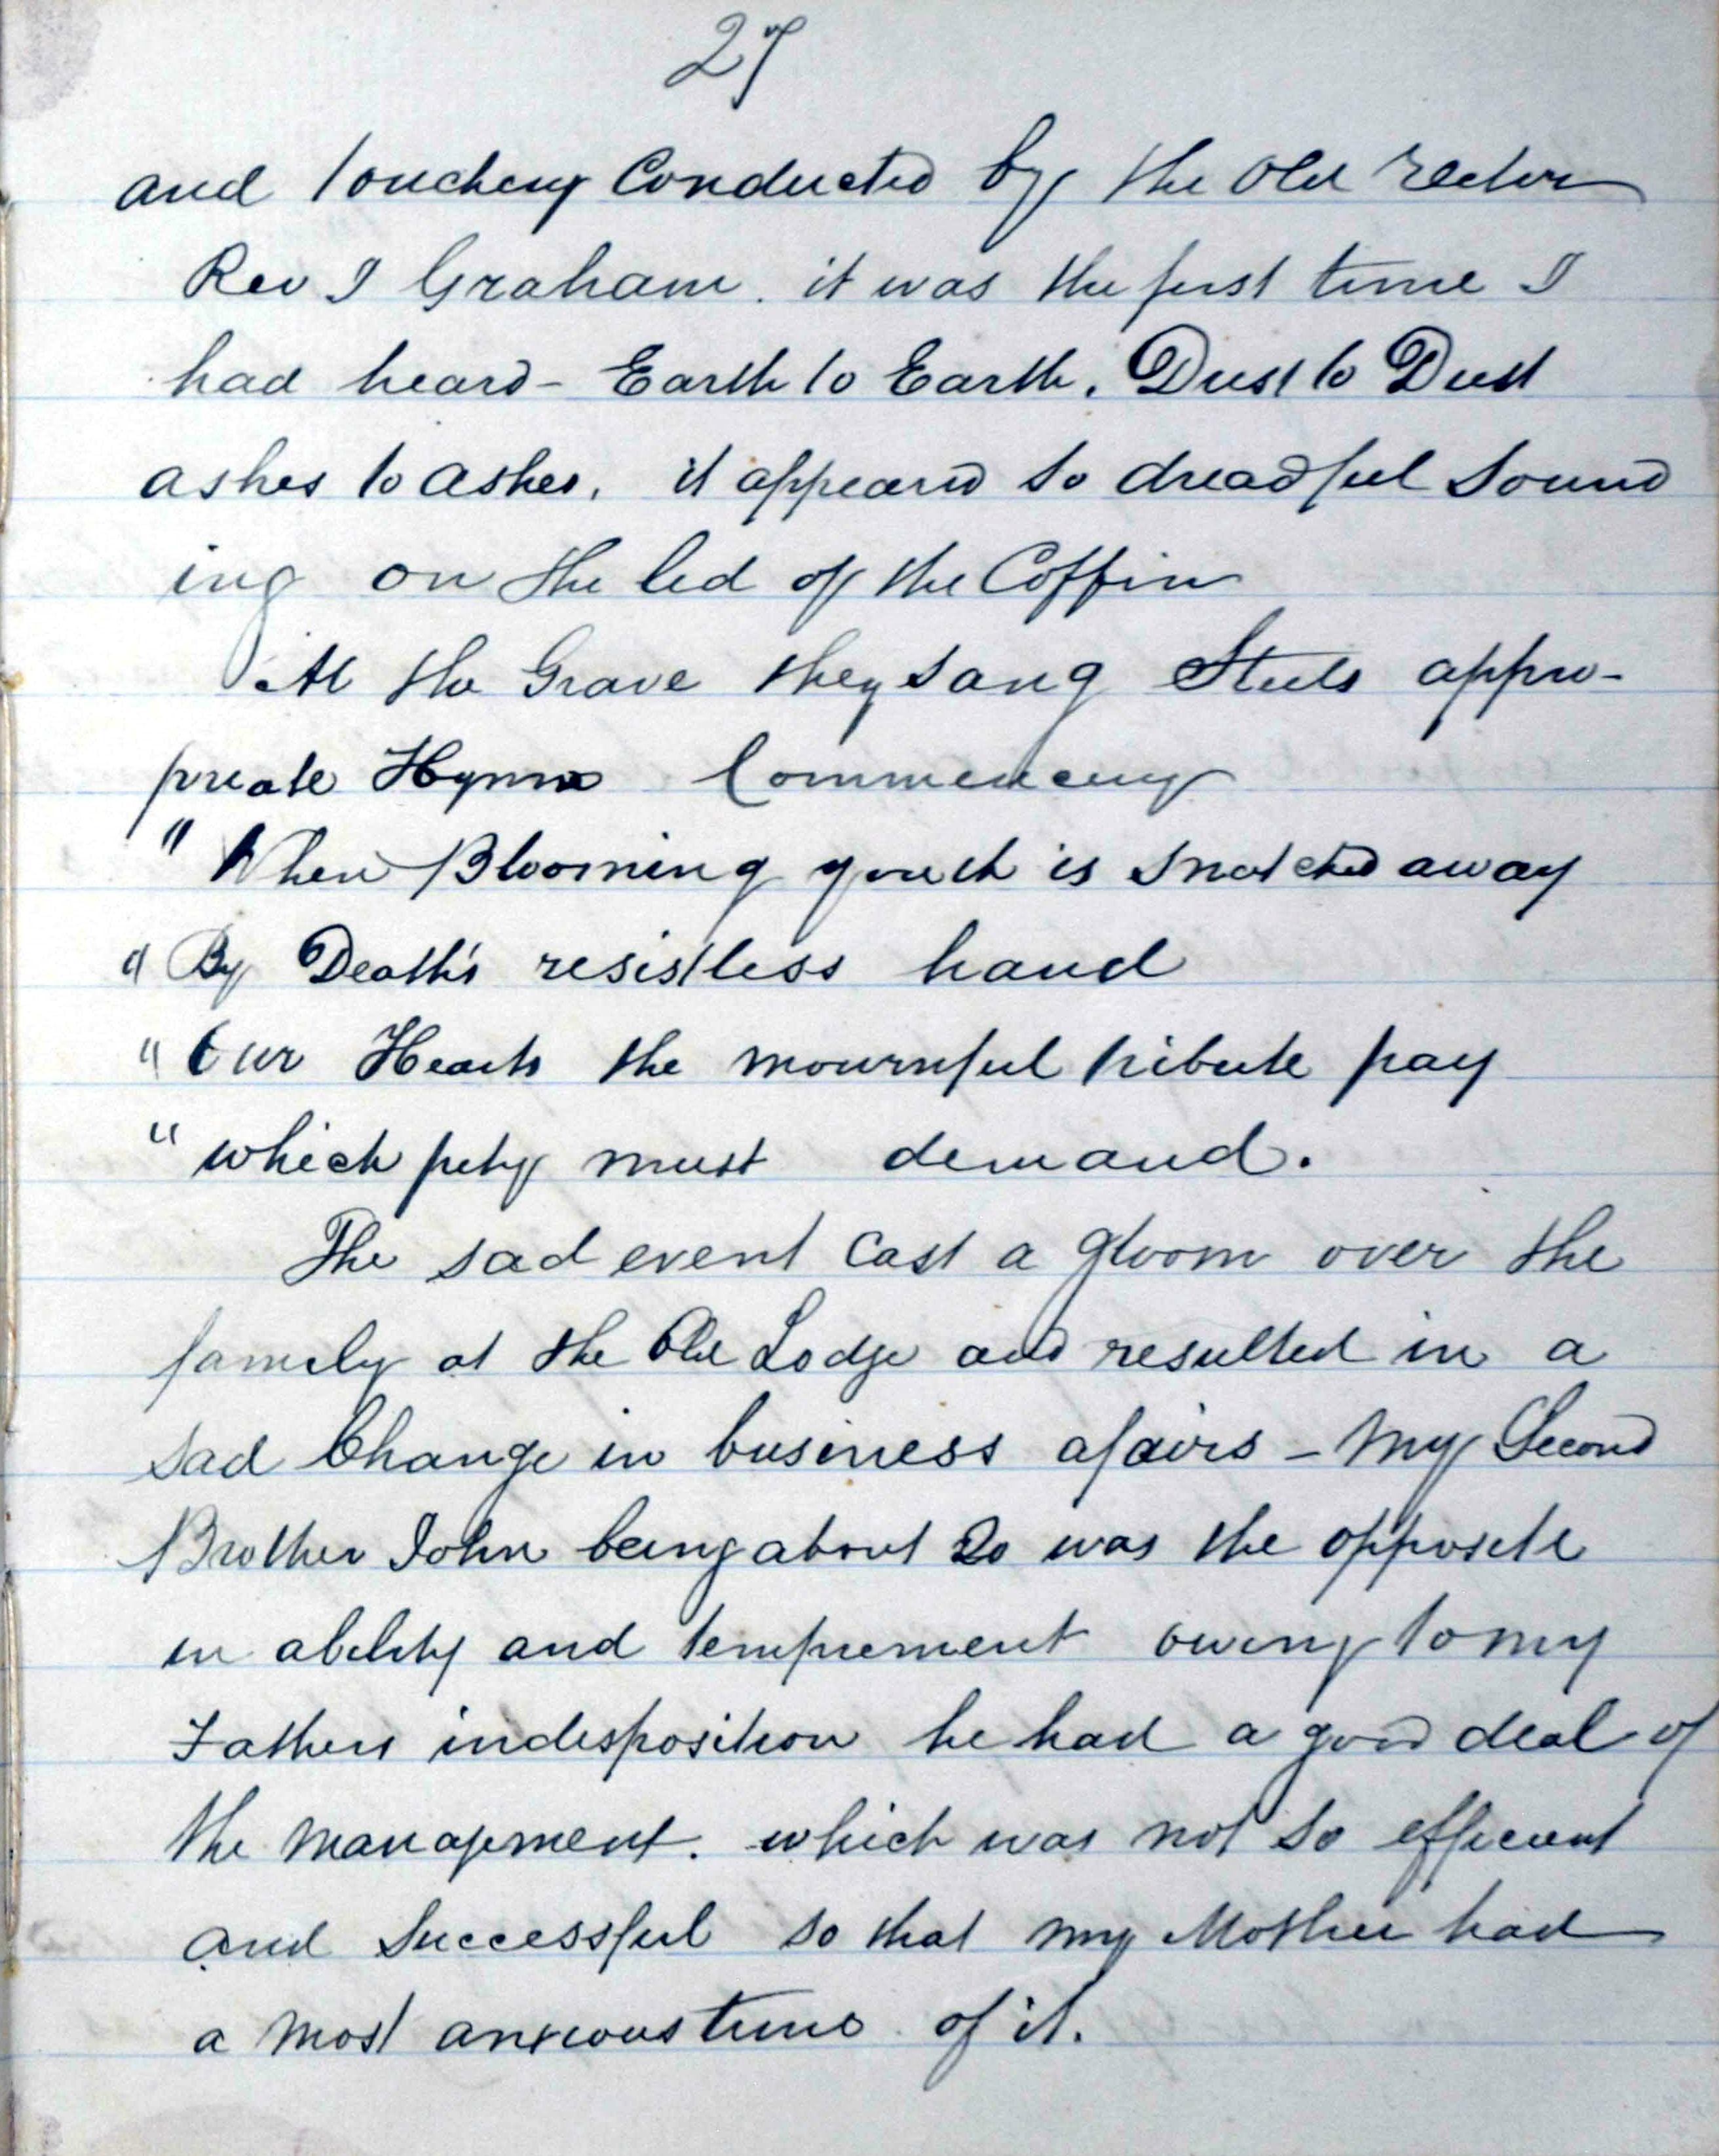 27
and touching Conducted by the Old Rector
Rev I Graham. it was the first time I
had heard - Earth to Earth. Dust to Dust
ashes to ashes, it appeared so dreadful Sound
ing on the led of the Coffin
At the Grave they sang Steels appro-
priate Hymn Commencing
" When Blooming youth is snatched away
" By Death's resistless hand
" Our Hearts the mournful tribute pay
" which pity must demand.
The sad event Cast a gloom over the
family at the Old Lodge and resulted in a
sad Change in business afairs - My Second
Brother John being about 20 was the opposite
in ability and temprement owing to my
Fathers indisposition he had a good deal of
the management. which was not so efficient
and Successful so that my Mother had
a most anxious time of it.